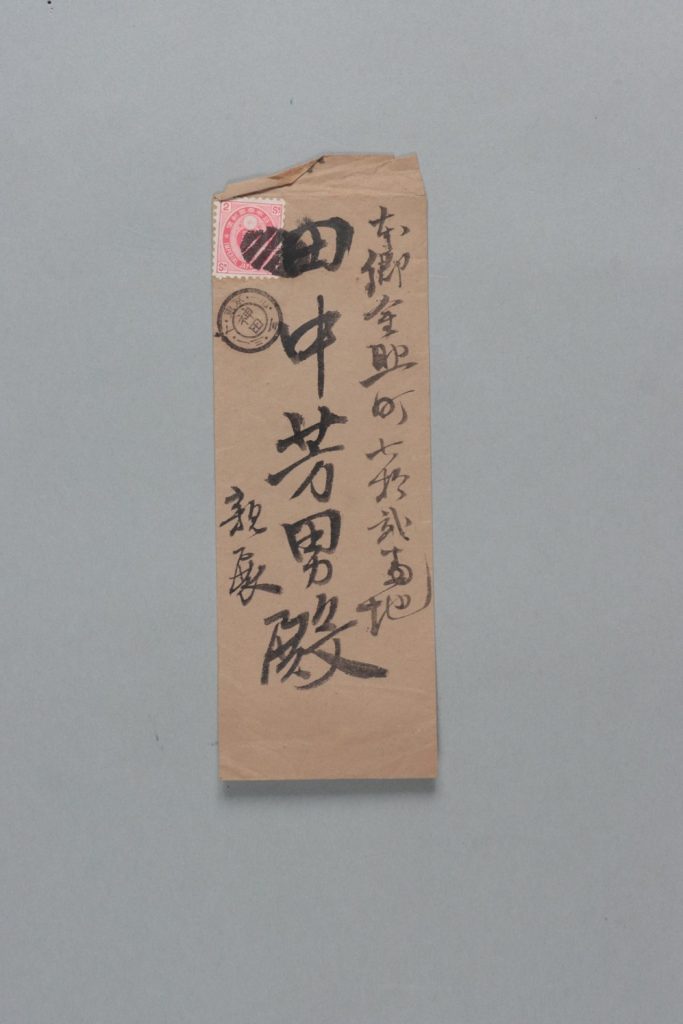 本郷金助町七拾弐番地
田中芳男殿
親展
2
Sn
神田
東京